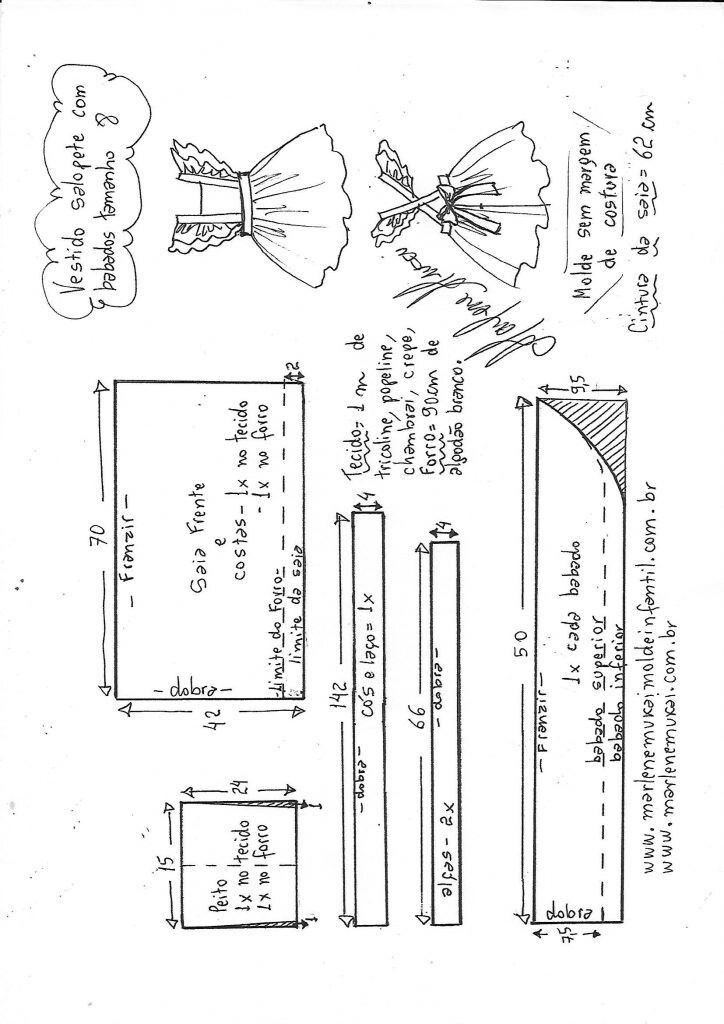 Vestido salopete com
babados tamanho 8
70
- Franzir -
Saia Frente
e
costas - 1x no tecido
- 1x no forro
- Limite do Forro -
limite da saia
- dobra -
42
2
15
24
Peito
1x no tecido
1x no forro
1
1
Tecido = 1 m de
tricoline, popeline,
chambrai, crepe,
Forro = 90cm de
algodão branco.
142
- dobra -
cós e laço = 1x
4
66
- dobra -
alças - 2x
4
Marlene Mukai
Molde sem margem
de costura
Cintura da saia = 62 cm
50
- Franzir -
1x cada babado
babado superior
babado inferior
dobra
7,5
9,5
www.marlenemukaimoldeinfantil.com.br
www.marlenemukai.com.br